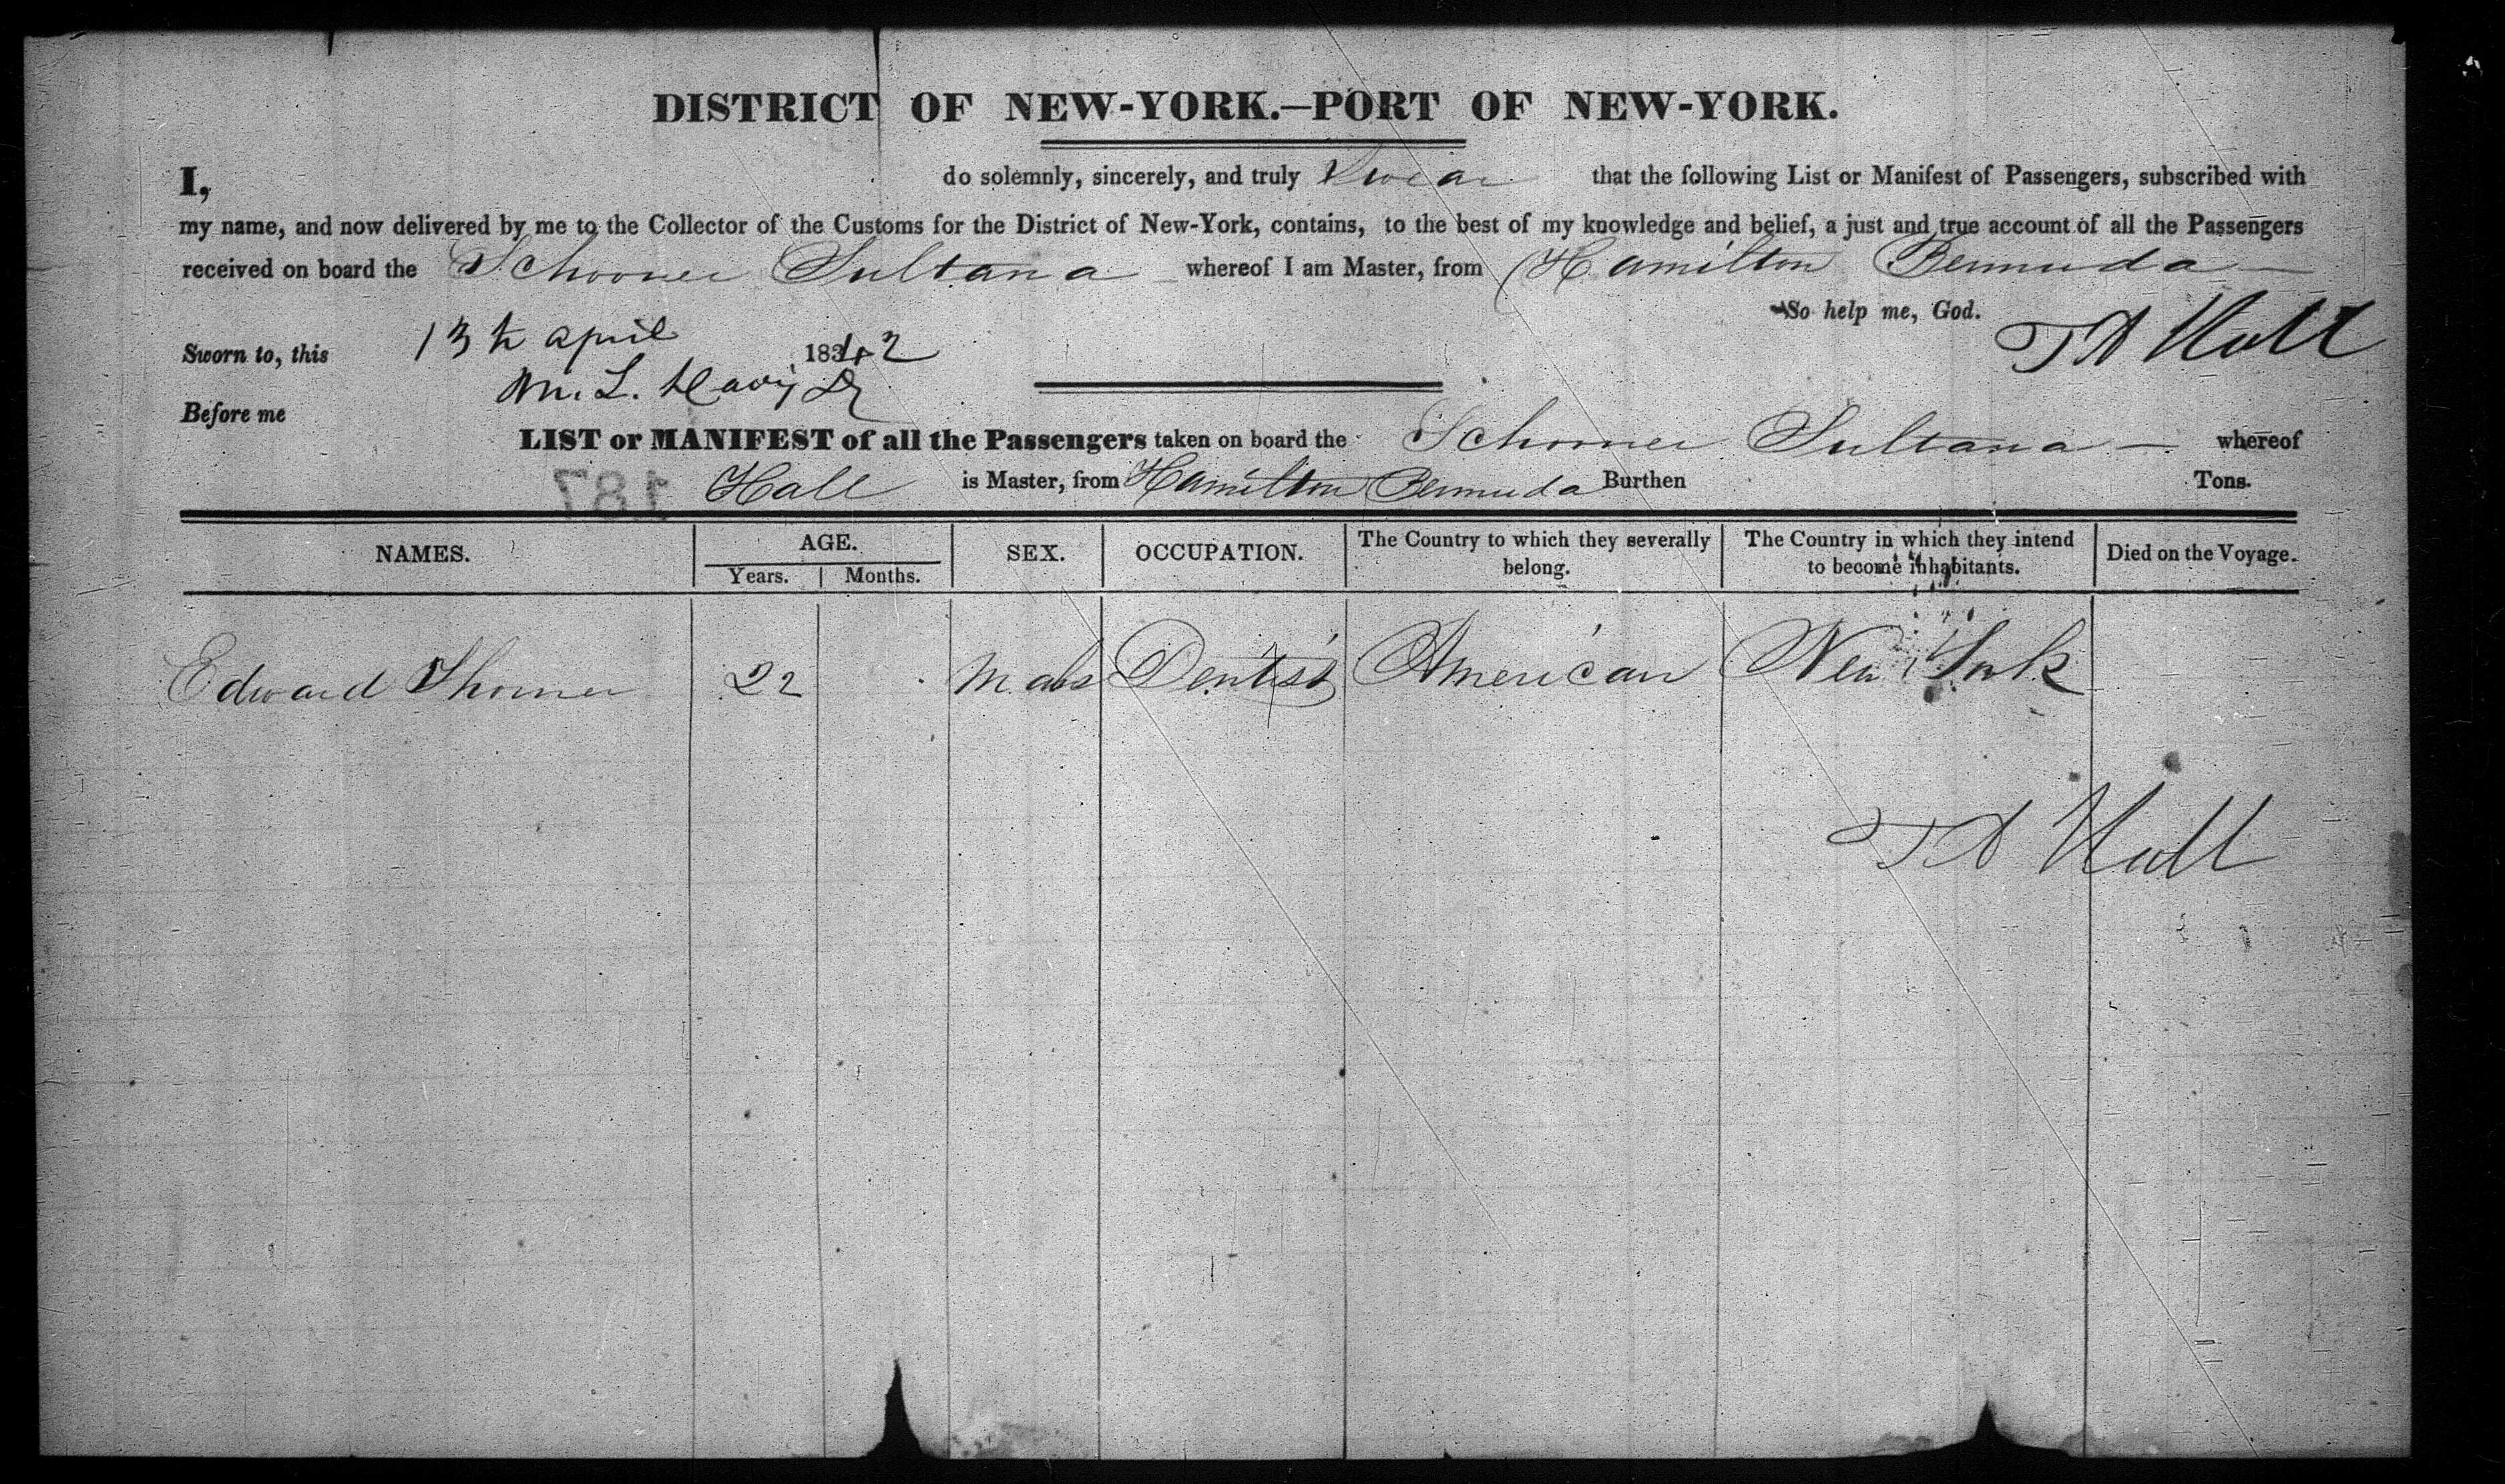 DISTRICT OF NEW-YORK.—PORT OF NEW-YORK.
I, do solemnly, sincerely, and truly Swear that the following List or Manifest of Passengers, subscribed with
my name, and now delivered by me to the Collector of the Customs for the District of New-York, contains, to the best of my knowledge and belief, a just and true account of all the Passengers
received on board the Schooner Sultana whereof I am Master, from Hamilton Bermuda —
So help me, God.
Sworn to, this 13th april 1842 T A Hall
Before me Wm. L. Davis
LIST or MANIFEST of all the Passengers taken on board the Schooner Sultana — whereof
187 Hall is Master, from Hamilton Bermuda Burthen Tons.
NAMES. AGE. SEX. OCCUPATION. The Country to which they severally belong. The Country in which they intend to become inhabitants. Died on the Voyage.
Years. Months.
Edward 22 Male Dentist American New York
T A Hall